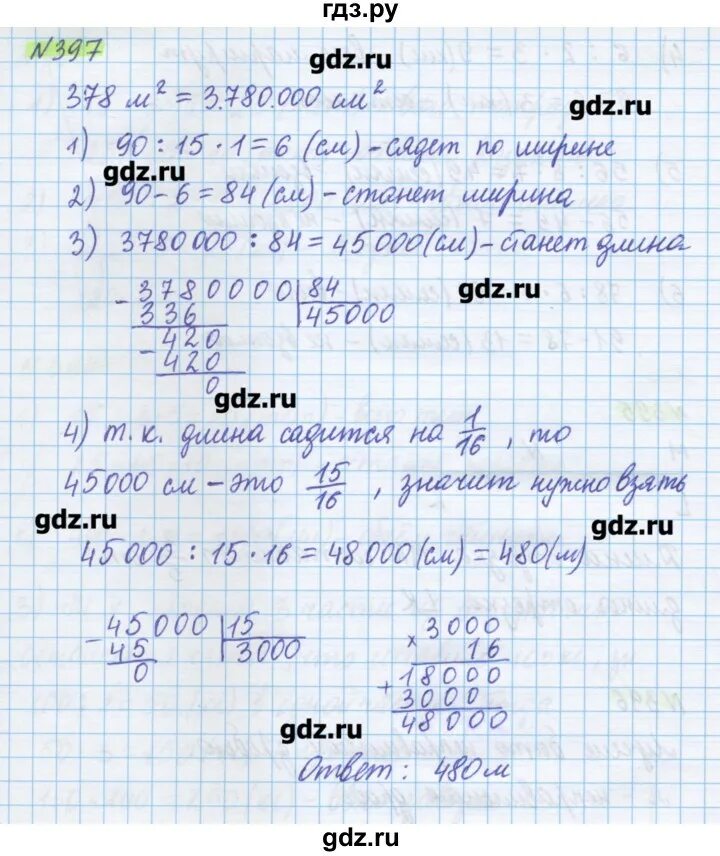 гдз.ру
N397
gdz.ru
378 м² = 3.780.000 см²
gdz.ru
1) 90 : 15 · 1 = 6 (см) – сядет по ширине
gdz.ru
2) 90 – 6 = 84 (см) – станет ширина
3) 3780000 : 84 = 45000 (см) – станет длина
gdz.ru
– 3780000 | 84
336 45000
– 420
420
0
gdz.ru
4) т.к. длина садится на 1/16, то
45000 см – это 15/16, значит нужно взять
gdz.ru
gdz.ru
45000 : 15 · 16 = 48000 (см) = 480 (м)
– 45000 | 15
45 3000
0
3000
× 16
18000
+ 3000
48000
gdz.ru
Ответ: 480 м
gdz.ru